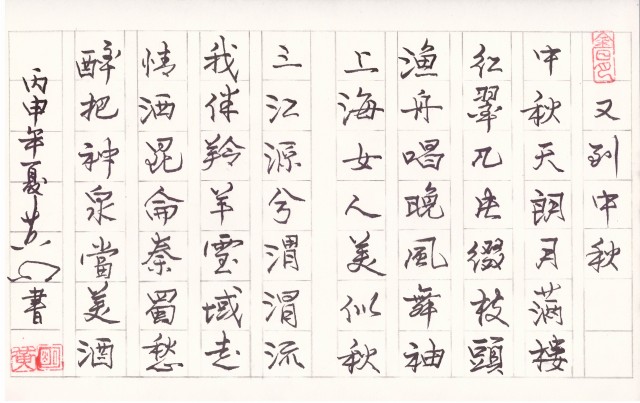 又到中秋
中秋天朗月满楼
红翠几缀枝頭
渔舟唱晚風舞袖
上海女人美似秋
三江源兮渭渭流
我伴羚羊靈域走
情洒昆侖秦蜀愁
醉把神泉當美酒
丙申年夏書